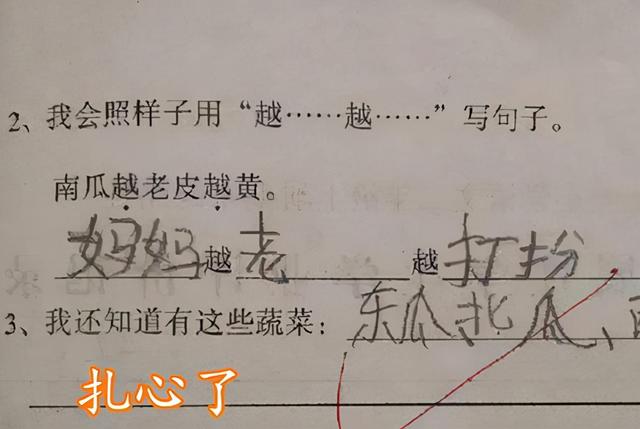 2、我会照样子用“越……越……”写句子。
南瓜越老皮越黄。
妈妈越老越打扮
3、我还知道有这些蔬菜：东瓜、北瓜、
扎心了